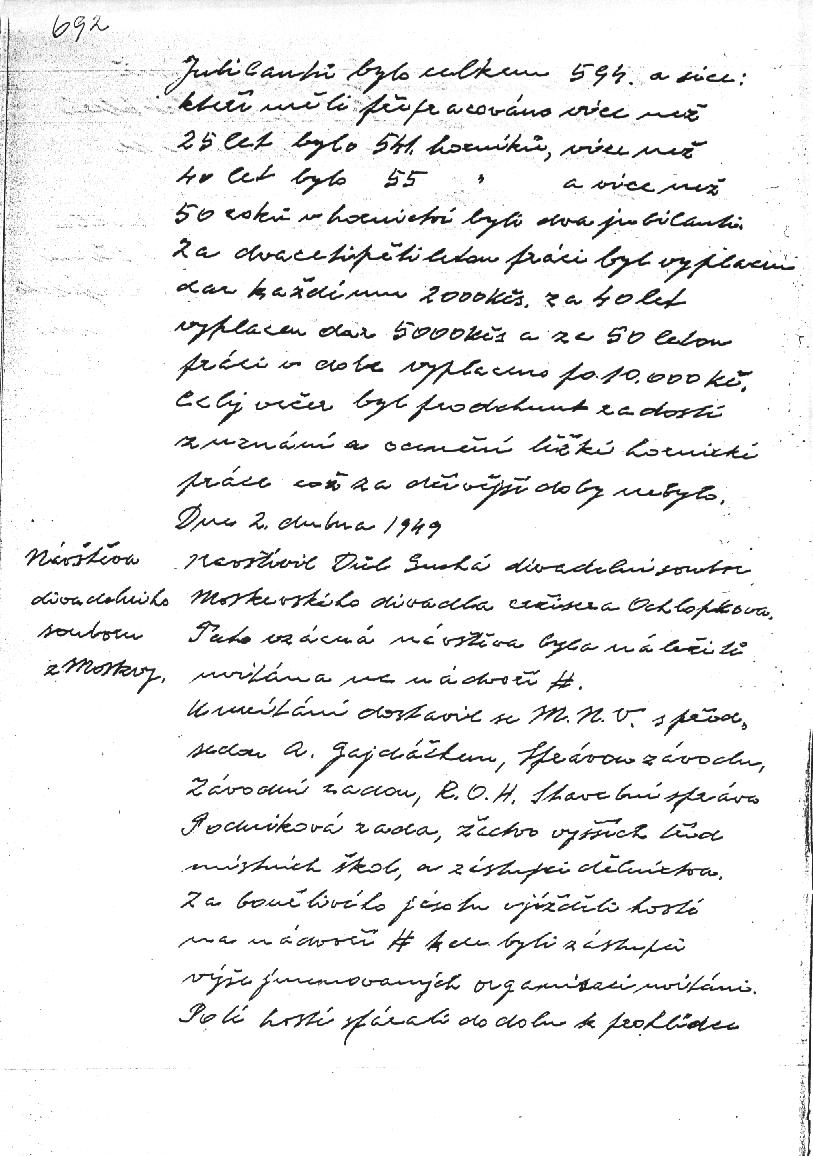 692
Jubilantů bylo celkem 594. a sice:
kteří měli přepracováno více než
25 let bylo 541. horníků, více než
40 let bylo 55 " a více než
50 roků v hornictví byli dva jubilanti.
Za dvacetipěti letou práci byl vyplacen
dar každému 2000 Kčs. za 40 let
vyplacen dar 5000 Kčs a za 50 letou
práci v dole vyplaceno po 10.000 kč.
Celý večer byl prodchnut radostí
z uznání a ocenění těžké hornické
práce což za dřívější doby nebylo.
Dne 2. dubna 1949
Návštěva
divadelního
souboru
z Moskvy.
navštívil Důl Suchá divadelní soubor
Moskevského divadla režisera Ochlopkova.
Tato vzácná návštěva byla náležitě
uvítána na nádvoří #.
K uvítání dostavil se M.N.V. s před,
sedou A. Gajdáčkem, Správou závodu,
Závodní radou, R.O.H. Stavební správa
Podniková rada, žactvo vyšších tříd
místních škol, a zástupci dělnictva.
Za bouřlivého jásotu vjížděli hosté
na nádvoří # kde byli zástupci
výše jmenovaných organisací uvítáni.
Poté hosté sfárali do dolu k prohlídce